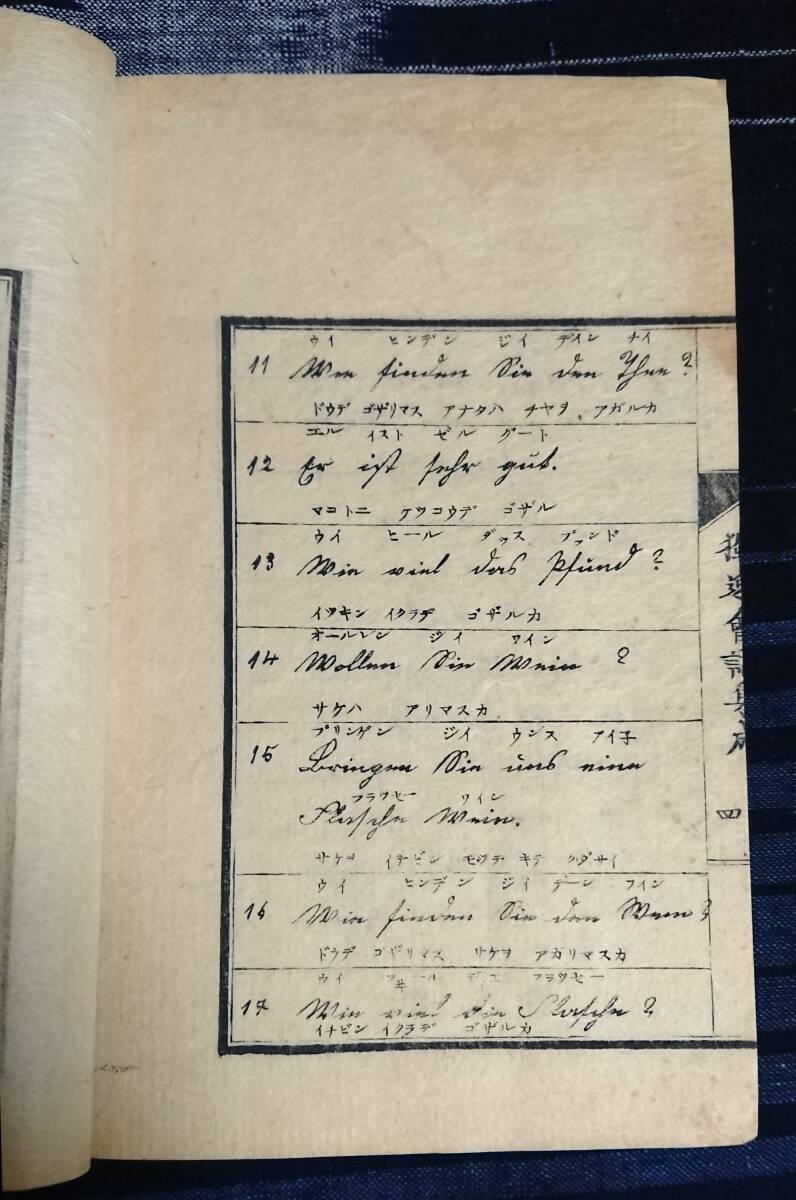 ウイ ヒンデン ジイ デイン テイ
11 Wie finden Sie den Thee?
ドウデ ゴザリマス アナタハ チヤヲ アガルカ
エル イスト ゼル グート
12 Er ist sehr gut.
マコトニ ケツコウデ ゴザル
ウイ ヒール ダッス プァンド
13 Wie viel das Pfund?
イツキン イクラデ ゴザルカ
オールレン ジイ ワイン
14 Wollen Sie Wein?
サケハ アリマスカ
ブリンゲン ジイ ウンス アイ子
15 Bringen Sie uns eine
フラウセー ワイン
Flasche Wein.
サケヲ イチビン モツテ キテ クダサイ
ウイ ヒンデン ジイ デーン
16 Wie finden Sie den Wein?
ドウデ ゴザリマス サケヲ アガリマスカ
ウイ フラウセー
17 Wie viel die Flasche?
イチビン イクラデ ゴザルカ
會話集成
四